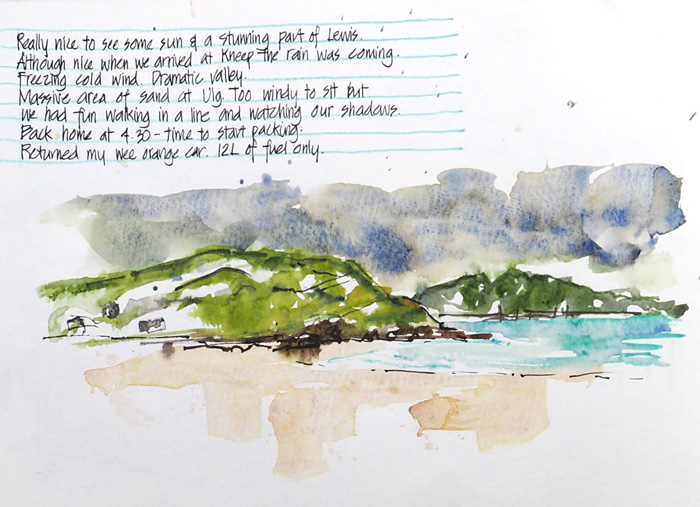 Really nice to see some sun & a stunning part of Lewis.
Although nice when we arrived at Kneep the rain was coming.
Freezing cold wind. Dramatic valley.
Massive area of sand at Uig. Too windy to sit but
we had fun walking in a line and watching our shadows.
Back home at 4.30 - time to start packing.
Returned my wee orange car. 12L of fuel only.